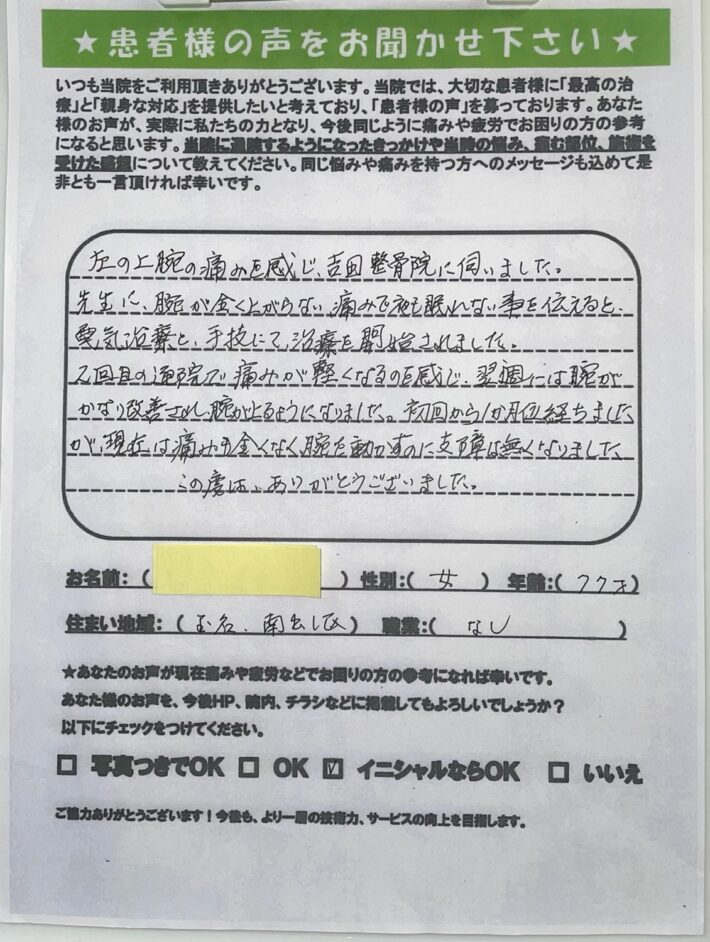 ★患者様の声をお聞かせ下さい★
いつも当院をご利用頂きありがとうございます。当院では、大切な患者様に「最高の治
療」と「親身な対応」を提供したいと考えており、「患者様の声」を募っております。あなた
様のお声が、実際に私たちの力となり、今後同じように痛みや疲労でお困りの方の参考
になると思います。当院に通院するようになったきっかけや当院の悩み、痛む部位、施術を
受けた感想について教えてください。同じ悩みや痛みを持つ方へのメッセージも込めて是
非とも一言頂ければ幸いです。
左の上腕の痛みを感じ、吉田整骨院に伺いました。
先生に、腕が全く上がらない痛みで夜も眠れない事を伝えると、
電気治療と、手技にて治療を開始されました。
2回目の通院で痛みが軽くなるのを感じ、翌週には腕が
かなり改善され腕が上るようになりました。初回から1か月位経ちました
が、現在は痛みも全くなく腕を動かすのに支障は無くなりました。
この度は、ありがとうございました。
お名前：（ ）性別：（ 女 ）年齢：（ 77才）
住まい地域：（玉名、南出区）職業：（ なし ）
★あなたのお声が現在痛みや疲労などでお困りの方の参考になれば幸いです。
あなた様のお声を、今後HP、院内、チラシなどに掲載してもよろしいでしょうか？
以下にチェックをつけてください。
☐ 写真つきでOK ☐ OK ☑ イニシャルならOK ☐ いいえ
ご協力ありがとうございます！今後も、より一層の技術力、サービスの向上を目指します。